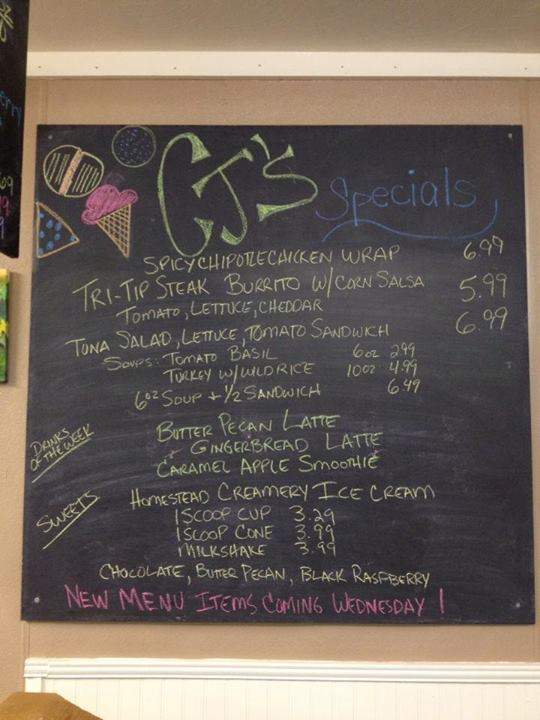 CJ's Specials
SPICY CHIPOTLE CHICKEN WRAP 6.99
TRI-TIP STEAK BURRITO W/CORN SALSA 5.99
TOMATO, LETTUCE, CHEDDAR
TUNA SALAD, LETTUCE, TOMATO SANDWICH 6.99
SOUPS: TOMATO BASIL 6oz 2.99
TURKEY W/WILD RICE 10oz 4.99
6oz SOUP + 1/2 SANDWICH 6.49
DRINKS OF THE WEEK
BUTTER PECAN LATTE
GINGERBREAD LATTE
CARAMEL APPLE SMOOTHIE
SWEETS
HOMESTEAD CREAMERY ICE CREAM
1 SCOOP CUP 3.29
1 SCOOP CONE 3.99
MILKSHAKE 3.99
CHOCOLATE, BUTTER PECAN, BLACK RASPBERRY
NEW MENU ITEMS COMING WEDNESDAY!